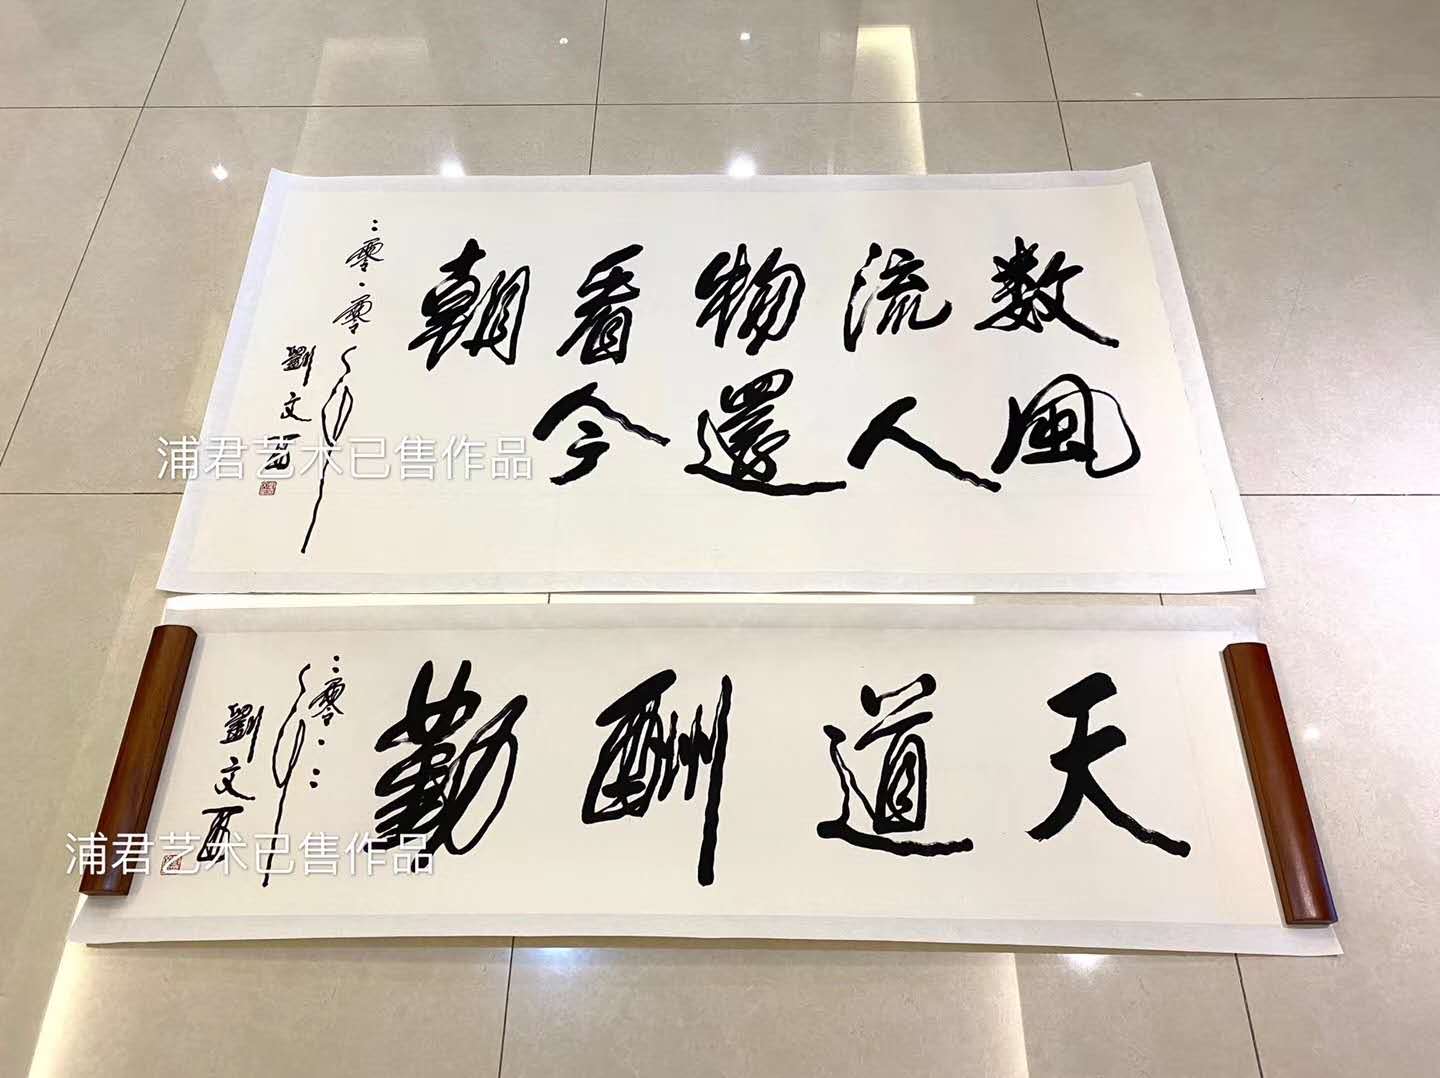 数風
流人
物還
看今
朝
二零一零年
劉文西
浦君艺术已售作品
天道酬勤
二零一二年
劉文西
浦君艺术已售作品